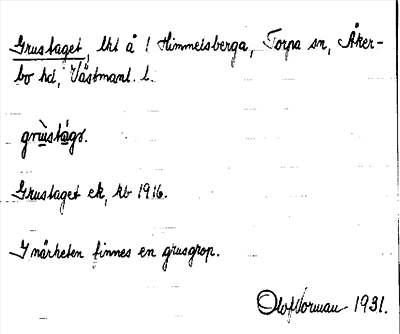 Grustaget, lht å 1 Himmelsberga, Torpa sn, Åker-
bo hd, Västmanl. l.
grùstágs.
Grustaget ek, kb 1916.
I närheten finnes en grusgrop.
Olof Norman 1931.